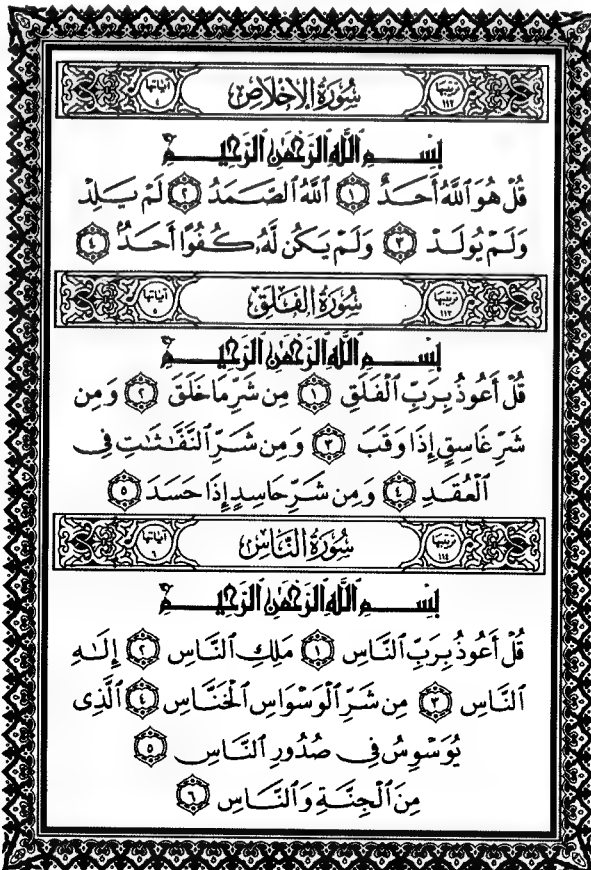 ترتيبها ١١٢ سُورَةُ الإِخْلَاصِ آياتها ٤
بِسْمِ ٱللَّهِ ٱلرَّحْمَٰنِ ٱلرَّحِيمِ
قُلْ هُوَ ٱللَّهُ أَحَدٌ ١ ٱللَّهُ ٱلصَّمَدُ ٢ لَمْ يَلِدْ
وَلَمْ يُولَدْ ٣ وَلَمْ يَكُن لَّهُۥ كُفُوًا أَحَدٌۢ ٤
ترتيبها ١١٣ سُورَةُ الْفَلَقِ آياتها ٥
بِسْمِ ٱللَّهِ ٱلرَّحْمَٰنِ ٱلرَّحِيمِ
قُلْ أَعُوذُ بِرَبِّ ٱلْفَلَقِ ١ مِن شَرِّ مَا خَلَقَ ٢ وَمِن
شَرِّ غَاسِقٍ إِذَا وَقَبَ ٣ وَمِن شَرِّ ٱلنَّفَّٰثَٰتِ فِى
ٱلْعُقَدِ ٤ وَمِن شَرِّ حَاسِدٍ إِذَا حَسَدَ ٥
ترتيبها ١١٤ سُورَةُ النَّاسِ آياتها ٦
بِسْمِ ٱللَّهِ ٱلرَّحْمَٰنِ ٱلرَّحِيمِ
قُلْ أَعُوذُ بِرَبِّ ٱلنَّاسِ ١ مَلِكِ ٱلنَّاسِ ٢ إِلَٰهِ
ٱلنَّاسِ ٣ مِن شَرِّ ٱلْوَسْوَاسِ ٱلْخَنَّاسِ ٤ ٱلَّذِى
يُوَسْوِسُ فِى صُدُورِ ٱلنَّاسِ ٥
مِنَ ٱلْجِنَّةِ وَٱلنَّاسِ ٦